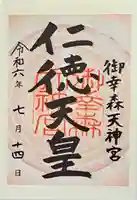 御幸森天神宮
仁徳天皇
令和六年 七月十四日